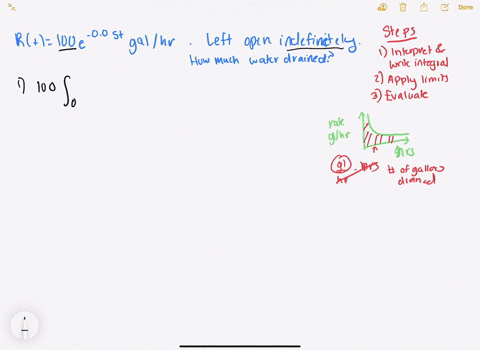 R(t)= 100e^-0.05t gal/hr . Left open indefinetely.
How much water drained?
1) 100 ∫₀
Steps
1) Interpret &
write integral
2) Apply limits
3) Evaluate
rate
gl/hr
hrs
gl/hr · hrs
# of gallons
drained
Done